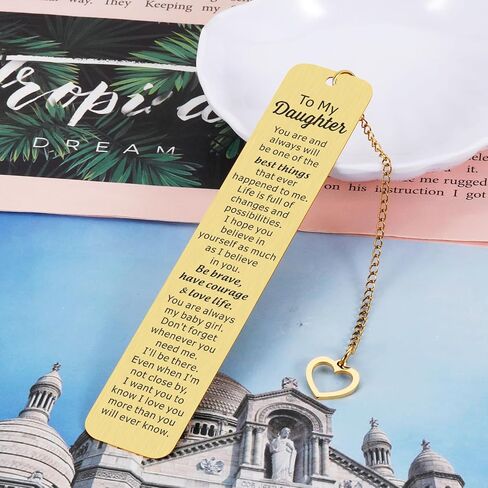 road. They Keeping my
Tropic
DREAM
To My
Daughter
You are and
always will
be one of the
best things
that ever
happened to me.
Life is full of
changes and
possibilities.
I hope you
believe in
yourself as much
as I believe
in you.
Be brave,
have courage
& love life.
You are always
my baby girl.
Don't forget
whenever you
need me.
I'll be there.
Even when I'm
not close by,
I want you to
know I love you
more than you
will ever know.
me rugged
on his instruction I got